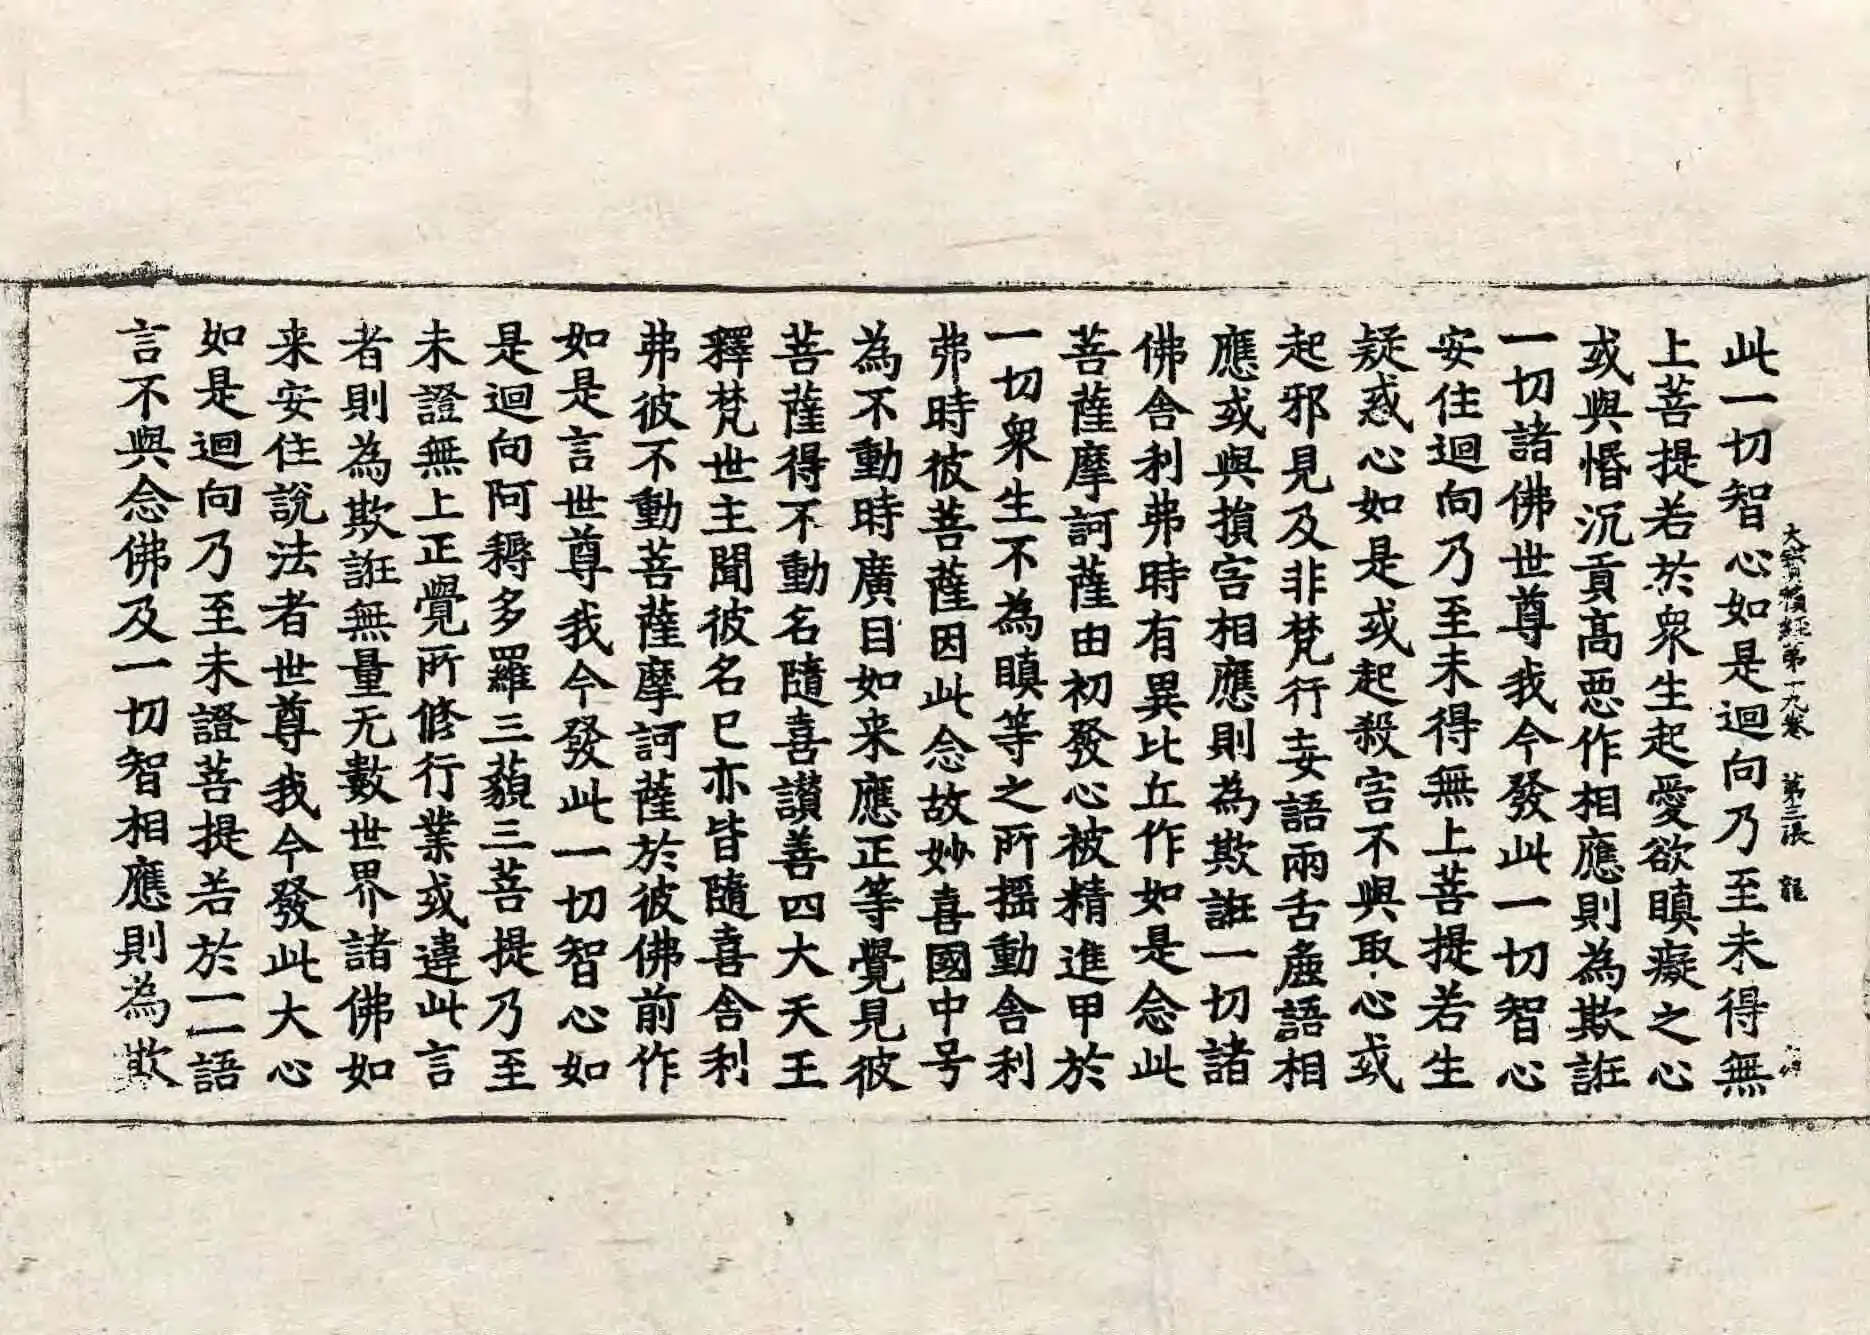 大寶積經第十九卷　第三張　龍
此一切智心如是迴向乃至未得無
上菩提若於衆生起愛欲瞋癡之心
或與惛沉貢高惡作相應則為欺誑
一切諸佛世尊我今發此一切智心
安住迴向乃至未得無上菩提若生
疑惑心如是或起殺害不與取心或
起邪見及非梵行妄語兩舌麁語相
應或與損害相應則為欺誑一切諸
佛舍利弗時有異比丘作如是念此
菩薩摩訶薩由初發心被精進甲於
一切衆生不為瞋等之所揺動舍利
弗時彼菩薩因此念故妙喜國中号
為不動時廣目如来應正等覺見彼
菩薩得不動名隨喜讃善四大天王
釋梵世主聞彼名已亦皆隨喜舍利
弗彼不動菩薩摩訶薩於彼佛前作
如是言世尊我今發此一切智心如
是迴向阿耨多羅三藐三菩提乃至
未證無上正覺所修行業或違此言
者則為欺誑無量无數世界諸佛如
来安住說法者世尊我今發此大心
如是迴向乃至未證菩提若於一一語
言不與念佛及一切智相應則為欺